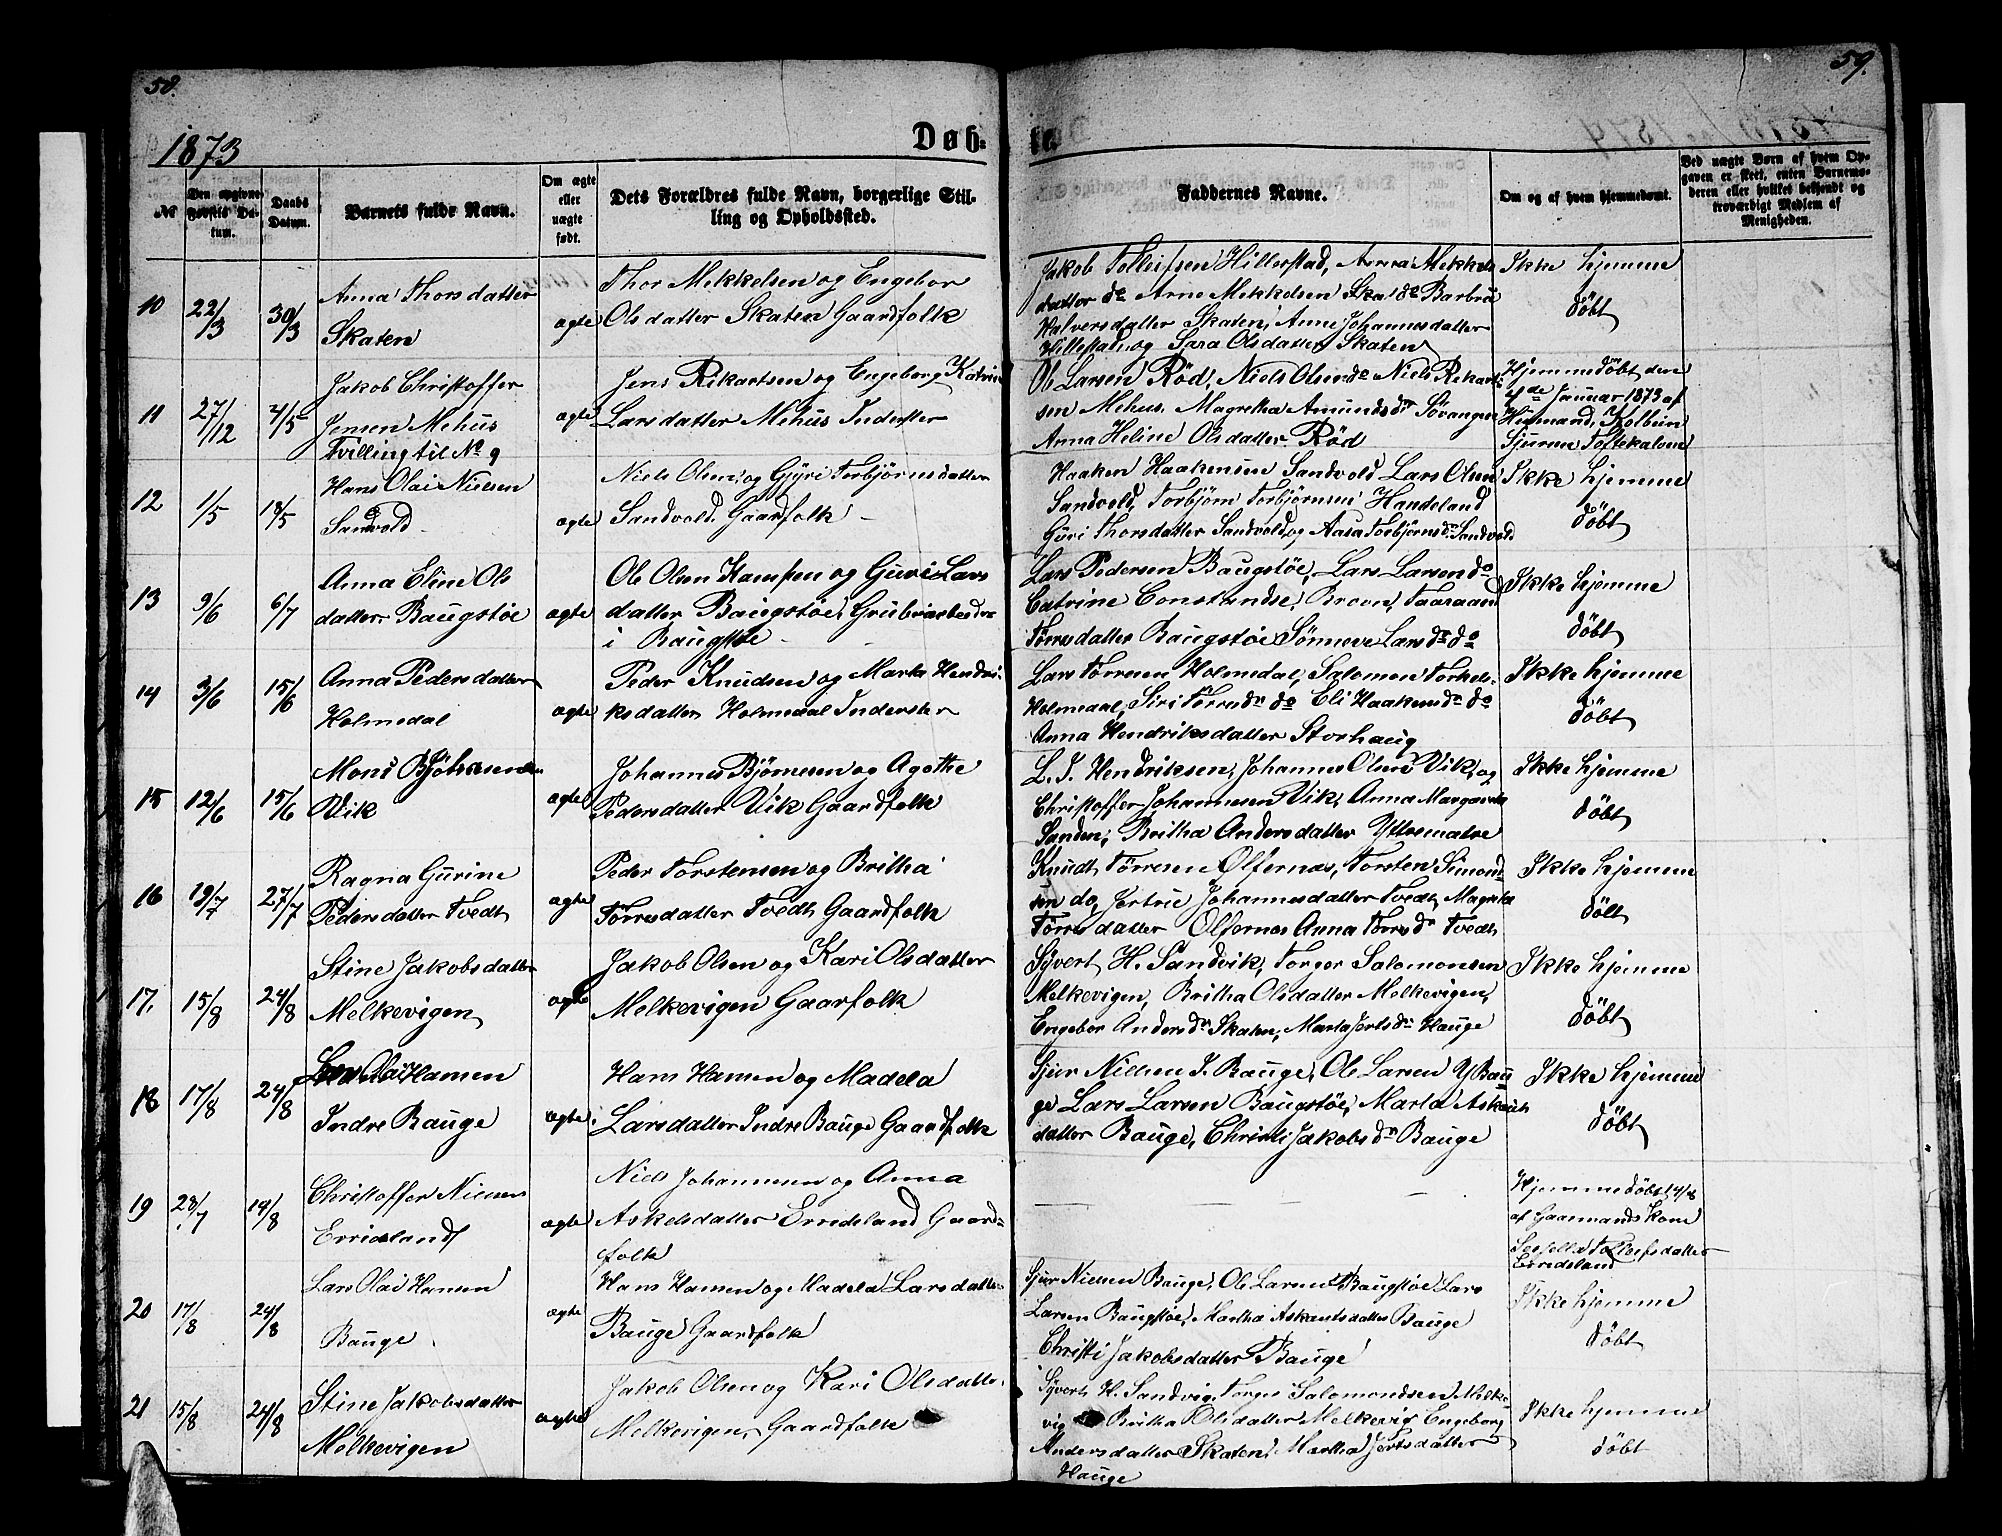 58.
59.
1873
Døb-
te.
№
Den opgivne Fødsels Datum.
Daabs Datum.
Barnets fulde Navn.
Om ægte eller uægte født.
Dets Forældres fulde Navn, borgerlige Stilling og Opholdssted.
Faddernes Navne.
Om og af hvem hjemmedøbt.
Ved uægte Børn af hvem Opgaven er skeet, enten Barnemoderen eller hvilket bekjendt og troværdigt Medlem af Menigheden.
10 22/3 30/3
Anna Thorsdatter
Skaten
ægte
Thor Mekkelsen og Engebor
Olsdatter Skaten Gaardfolk
Jakob Tollefsen Hillestad, Anna Mekkels
datter do Arne Mekkelsen Skat do Barbru
Halversdatter Skaten, Anne Johannesdatter
Hillestad, og Sara Olsdatter Skaten
Ikke hjemme
döbt
11 27/12 4/5
Jakob Christoffer
Jensen Mehus
Tvilling til No 9
ægte
Jens Rikartsen og Engeborg Katrin
Larsdatter Mehus Inderster
Ol Larsen Röd, Niels Olsen do Niels Rekart
sen Mehus. Magretha Amundsdr Sövangen
Anna Heline Olsdatter Röd
Hjemmedöbt den
4de Januar 1873 af
Husmand, Kolbein
Sjursen Toftekalven
12 1/5 18/5
Hans Olai Nielsen
Sandvold
ægte
Niels Olsen og Gjyri Torbjörnsdatter
Sandvold. Gaardfolk
Haaken Haakensen Sandvold Lars Olsen
Sandvold, Torbjörn Torbjörnsen Handeland
Guri Thorsdatter Sandvold, og Aasa Torbjörnsdr. Sandvold
Ikke hjemme
döbt
13 9/6 6/7
Anna Eline Ols
datter Baugstöe
ægte
Ole Olsen Kampen og Guri Lars
datter Baugstöe, Grubearbeider
i Baugstöe
Lars Pedersen Baugstöe, Lars Larsen do
Catrine Constandse, Broen, Taaraand
Törresdatter Baugstöe Sönneve Larsdr do
Ikke hjemme
döbt
14 3/6 15/6
Anna Pedersdatter
Holmedal
ægte
Peder Knudsen og Marta Hendri-
ksdatter Holmedal Inderster
Lars Törresen Holmedal, Salomon Torkels-
Holmedal, Siri Törresdr do Eli Haakensdr do
Anna Hendriksdatter Storhaug
Ikke hjemme
döbt
15 12/6 15/6
Mons
Vik
ægte
Johannes Björnesen og Agothe
Pedersdatter Vik Gaardfolk
L. J. Hendriksen, Johannes Olsen Vik, og
Christoffer Johannesen Vik, Anna Margareta
Sanden, Britha Andersdatter Yttrematre
Ikke hjemme
döbt
16 19/7 27/7
Ragna Gurine
Pedersdatter Tvedt
ægte
Peder Torstensen og Britha
Törresdatter Tvedt Gaardfolk
Knudt Törresen Ölfernes, Torsten Simond-
sen do, Jertrue Johannesdatter Tvedt, Magreta
Törresdatter Ölfernes Anna Törresdr Tvedt
Ikke hjemme
döbt
17. 15/8 24/8
Stine Jakobsdatter
Melkevigen
ægte
Jakob Olsen og Kari Olsdatter
Melkevigen Gaarfolk
Syvert H. Sandvik, Torger Salomonsen
Melkevigen, Britha Olsdatter Melkevigen,
Engebor Andersdr Skaten, Marta Jertsdr Hauge
Ikke hjemme
döbt
18 17/8 24/8
Lars Olai Hansen
Indre Bauge
ægte
Hans Hansen og Madela
Larsdatter Indre Bauge Gaardfolk
Sjur Nielsen I. Bauge, Ole Larsen Y Bau
ge Lars Larsen Baugstöe, Marta Askauts
datter Bauge, Christi Jakobsdr Bauge
Ikke hjemme
döbt
19 28/7 14/8
Christoffer Nielsen
Erridsland
ægte
Niels Johannesen og Anna
Askelsdatter Erridsland Gaard-
folk
Hjemmedöbt 14/8
af Gaarmands Kone
Tollefsdatter
Erridsland
20 17/8 24/8
Lars Olai Hansen
Bauge
ægte
Hans Hansen og Madela Larsdatter
Bauge Gaardfolk
Sjur Nielsen Bauge, Ole Larsen Baugstöe Lars
Larsen Baugstöe, Martha Askautsdatter Bauge
Christi Jakobsdatter Bauge
Ikke hjemme
döbt
21 15/8 24/8
Stine Jakobsdatter
Melkevigen
ægte
Jakob Olsen og Kari Olsdatter
Melkevigen, Gaardfolk
Syvert H. Sandvig, Torger Salomondsen Melke-
vig Britha Olsdatter Melkevig Engeborg
Andersdatter Skaten, Martha Jertsdatter
Hauge
Ikke hjemme
döbt